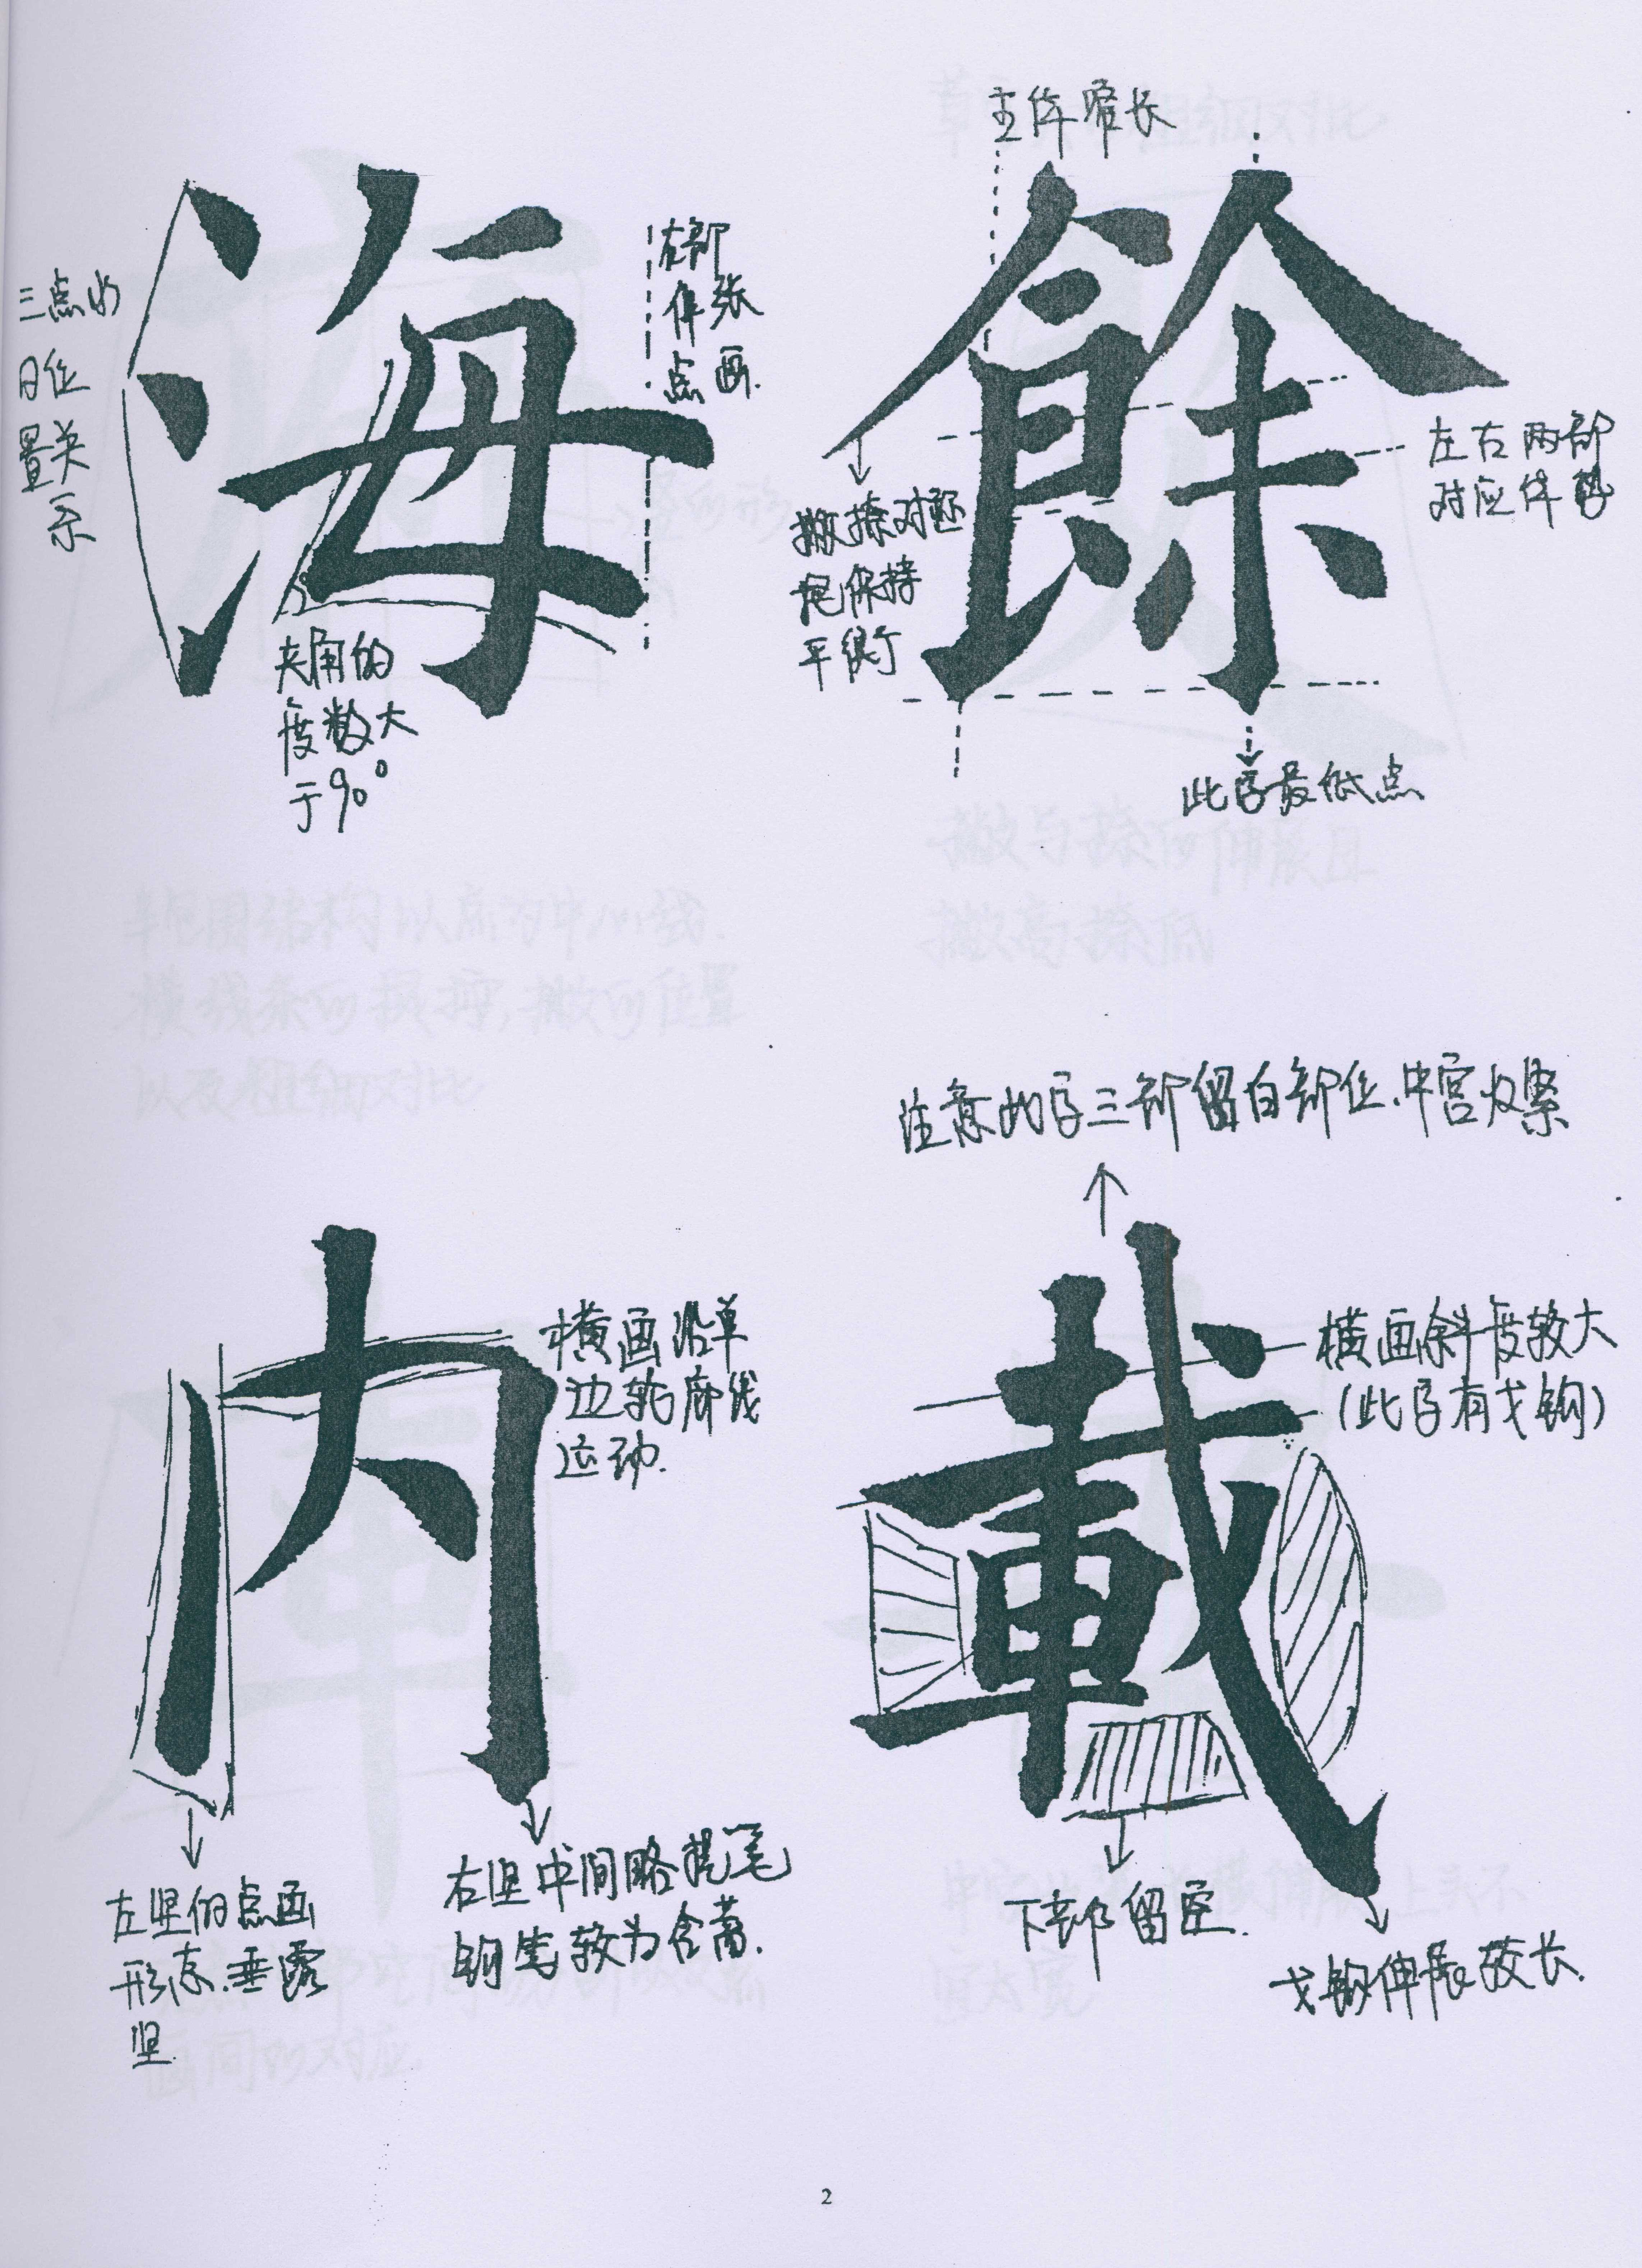 海
三点水
的位
置关
系
右部
伸张
点画.
夹角的
度数大
于90°
餘
主体窄长
撇捺对称
保持
平衡
左右两部
对应体势
此字最低点
内
横画沿单
边轮廓线
运动.
左竖的点画
形态.垂露
竖.
右竖中间略提笔
钩笔较为含蓄.
載
注意此字三部留白部位.中宫收紧
横画斜度较大
(此字有戈钩)
下部留空.
戈钩伸展较长.
2